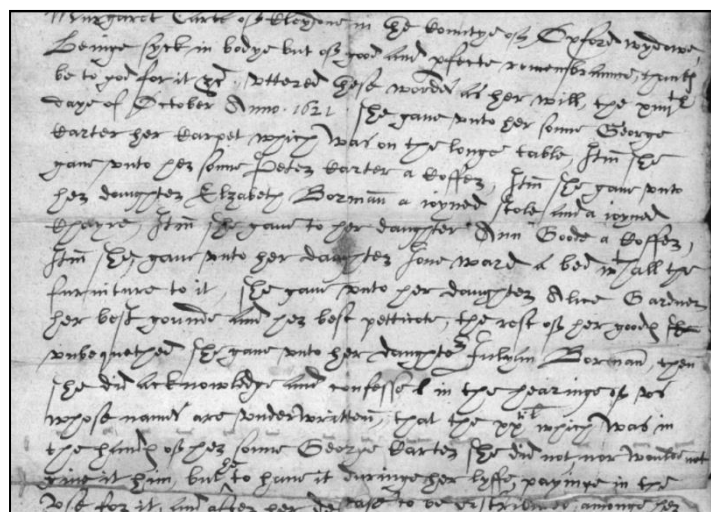 Margaret Carter of in the countye of Oxford wydowe
Beinge syck in bodye but of good and pfecte remembraunce, thankes
be to god for it &c. uttered these wordes as her will, the xiiith
daye of October Anno. 1621 She gave unto her sonne George
Karter her karpet which was on the longe table, Itm she
gave unto her sonne Peter Karter a koffer, Itm she gave unto
her daughter Elizabeth Bormann a joyned stole and a joyned
khayre, Itm she gave to her daughter Ann Goode a koffer,
Itm she gave unto her daughter Jone Ward a bed wth all the
furniture to it, She gave unto her daughter Alice Gardner
her best gounde and her best petticote, the rest of her goodes she
unbequethed she gave unto her daughter Bormann, then
she did acknowledge and confesse in the hearinge of us
whose names are underwritten, that the xxli which was in
the handes of her sonne George Karter she did not nor would not
give it him, but he to have it duringe her lyffe, payinge in the
use for it, and after her decease to be distributed amonge her